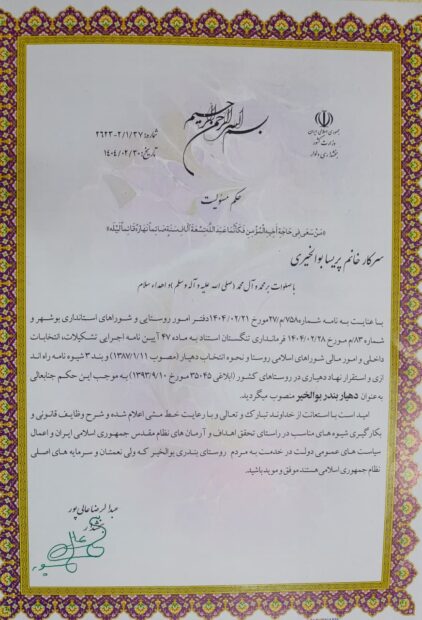 بسم الله الرحمن الرحیم
جمهوری اسلامی ایران
وزارت کشور
بخشداری دلوار
شماره: ۲۶۲۳-۲/۱/۳۷
تاریخ: ۱۴۰۴/۰۲/۳۰
حکم مسئولیت
«مَن سَعَی فِی حَاجَةِ أَخِیهِ الْمُؤمِنِ فَکَأَنَّمَا عَبَدَ اللَّهَ تِسْعَةَ آلافِ سَنَةٍ صَائِماً نَهَارَهُ قَائِماً لَیْلَهُ»
سرکار خانم پریسا بوالخیری
با صلوات بر محمد و آل محمد (صلی الله علیه و آله و سلم) و اهداء سلام
با عنایت به نامه شماره ۷۵۸/م/۲۷مورخ ۱۴۰۴/۰۲/۲۱دفتر امور روستایی و شوراهای استانداری بوشهر و
شماره ۸۳/م مورخ ۱۴۰۴/۰۲/۲۸ فرمانداری تنگستان استناد به ماده ۴۷ آیین نامه اجرایی تشکیلات، انتخابات
داخلی و امور مالی شوراهای اسلامی روستا و نحوه انتخاب دهیار (مصوب ۱۳۸۷/۱/۱۱) و بند ۳ شیوه نامه راه اند
ازی و استقرار نهاد دهیاری در روستاهای کشور (ابلاغی ۳۵۰۴۵ مورخ ۱۳۹۳/۹/۱۰) به موجب این حکم جنابعالی
به عنوان دهیار بندر بوالخیر منصوب میگردید.
امید است با استعانت از خداوند تبارک و تعالی و با رعایت خط مشی اعلام شده و شرح وظایف قانونی و
بکارگیری شیوه های مناسب در راستای تحقق اهداف و آرمان های نظام مقدس جمهوری اسلامی ایران و اعمال
سیاست های عمومی دولت در خدمت به مردم روستای بندری بوالخیر که ولی نعمتان و سرمایه های اصلی
نظام جمهوری اسلامی هستند موفق و موید باشید.
عبدالرضا عالی پور
بخشدار